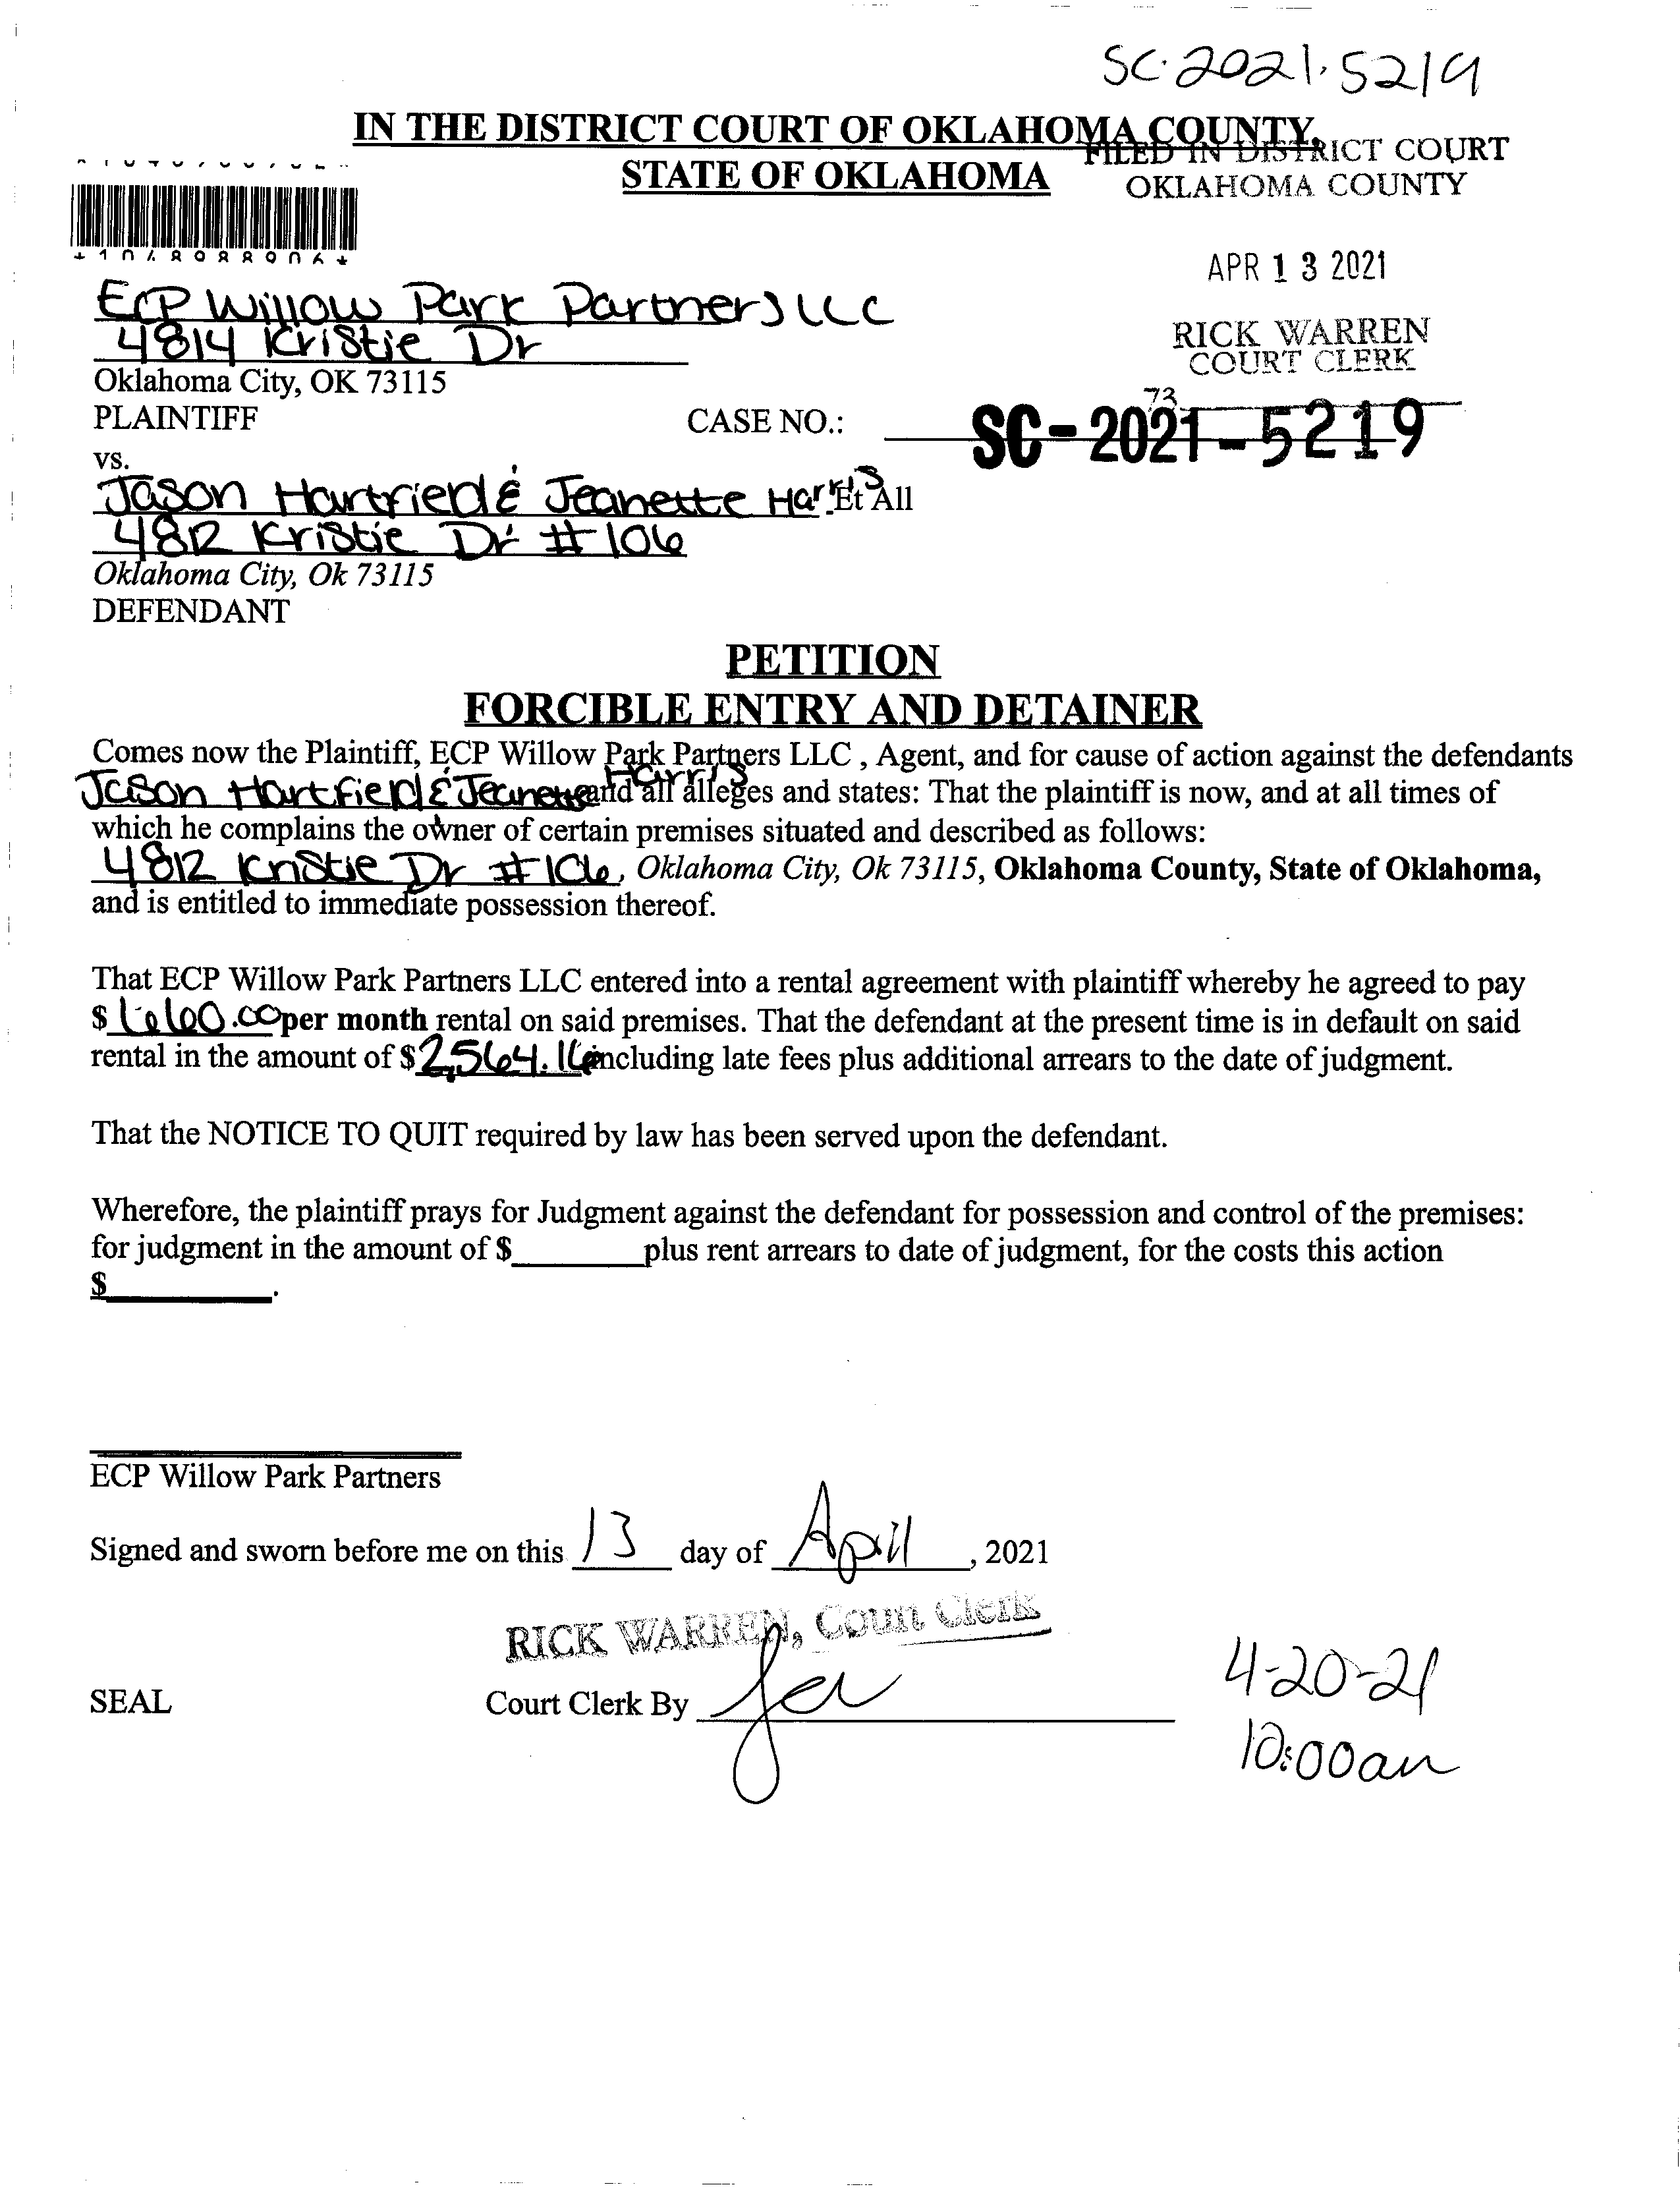 SC-2021-5219
IN THE DISTRICT COURT OF OKLAHOMA COUNTY,
STATE OF OKLAHOMA
FILED IN DISTRICT COURT
OKLAHOMA COUNTY
APR 13 2021
RICK WARREN
COURT CLERK
73
ECP Willow Park Partners LLC
4814 Kristie Dr
Oklahoma City, OK 73115
PLAINTIFF
CASE NO.: SC-2021-5219
vs.
Jason Hartfield & Jeanette Harris Et All
4812 Kristie Dr #106
Oklahoma City, Ok 73115
DEFENDANT
PETITION
FORCIBLE ENTRY AND DETAINER
Comes now the Plaintiff, ECP Willow Park Partners LLC , Agent, and for cause of action against the defendants
Jason Hartfield & Jeanette Harris and all alleges and states: That the plaintiff is now, and at all times of
which he complains the owner of certain premises situated and described as follows:
4812 Kristie Dr #106, Oklahoma City, Ok 73115, Oklahoma County, State of Oklahoma,
and is entitled to immediate possession thereof.
That ECP Willow Park Partners LLC entered into a rental agreement with plaintiff whereby he agreed to pay
$ 660.00 per month rental on said premises. That the defendant at the present time is in default on said
rental in the amount of $2,564.16 including late fees plus additional arrears to the date of judgment.
That the NOTICE TO QUIT required by law has been served upon the defendant.
Wherefore, the plaintiff prays for Judgment against the defendant for possession and control of the premises:
for judgment in the amount of $________plus rent arrears to date of judgment, for the costs this action
$__________.
ECP Willow Park Partners
Signed and sworn before me on this 13 day of April, 2021
RICK WARREN, Court Clerk
SEAL
Court Clerk By
4-20-21
10:00am